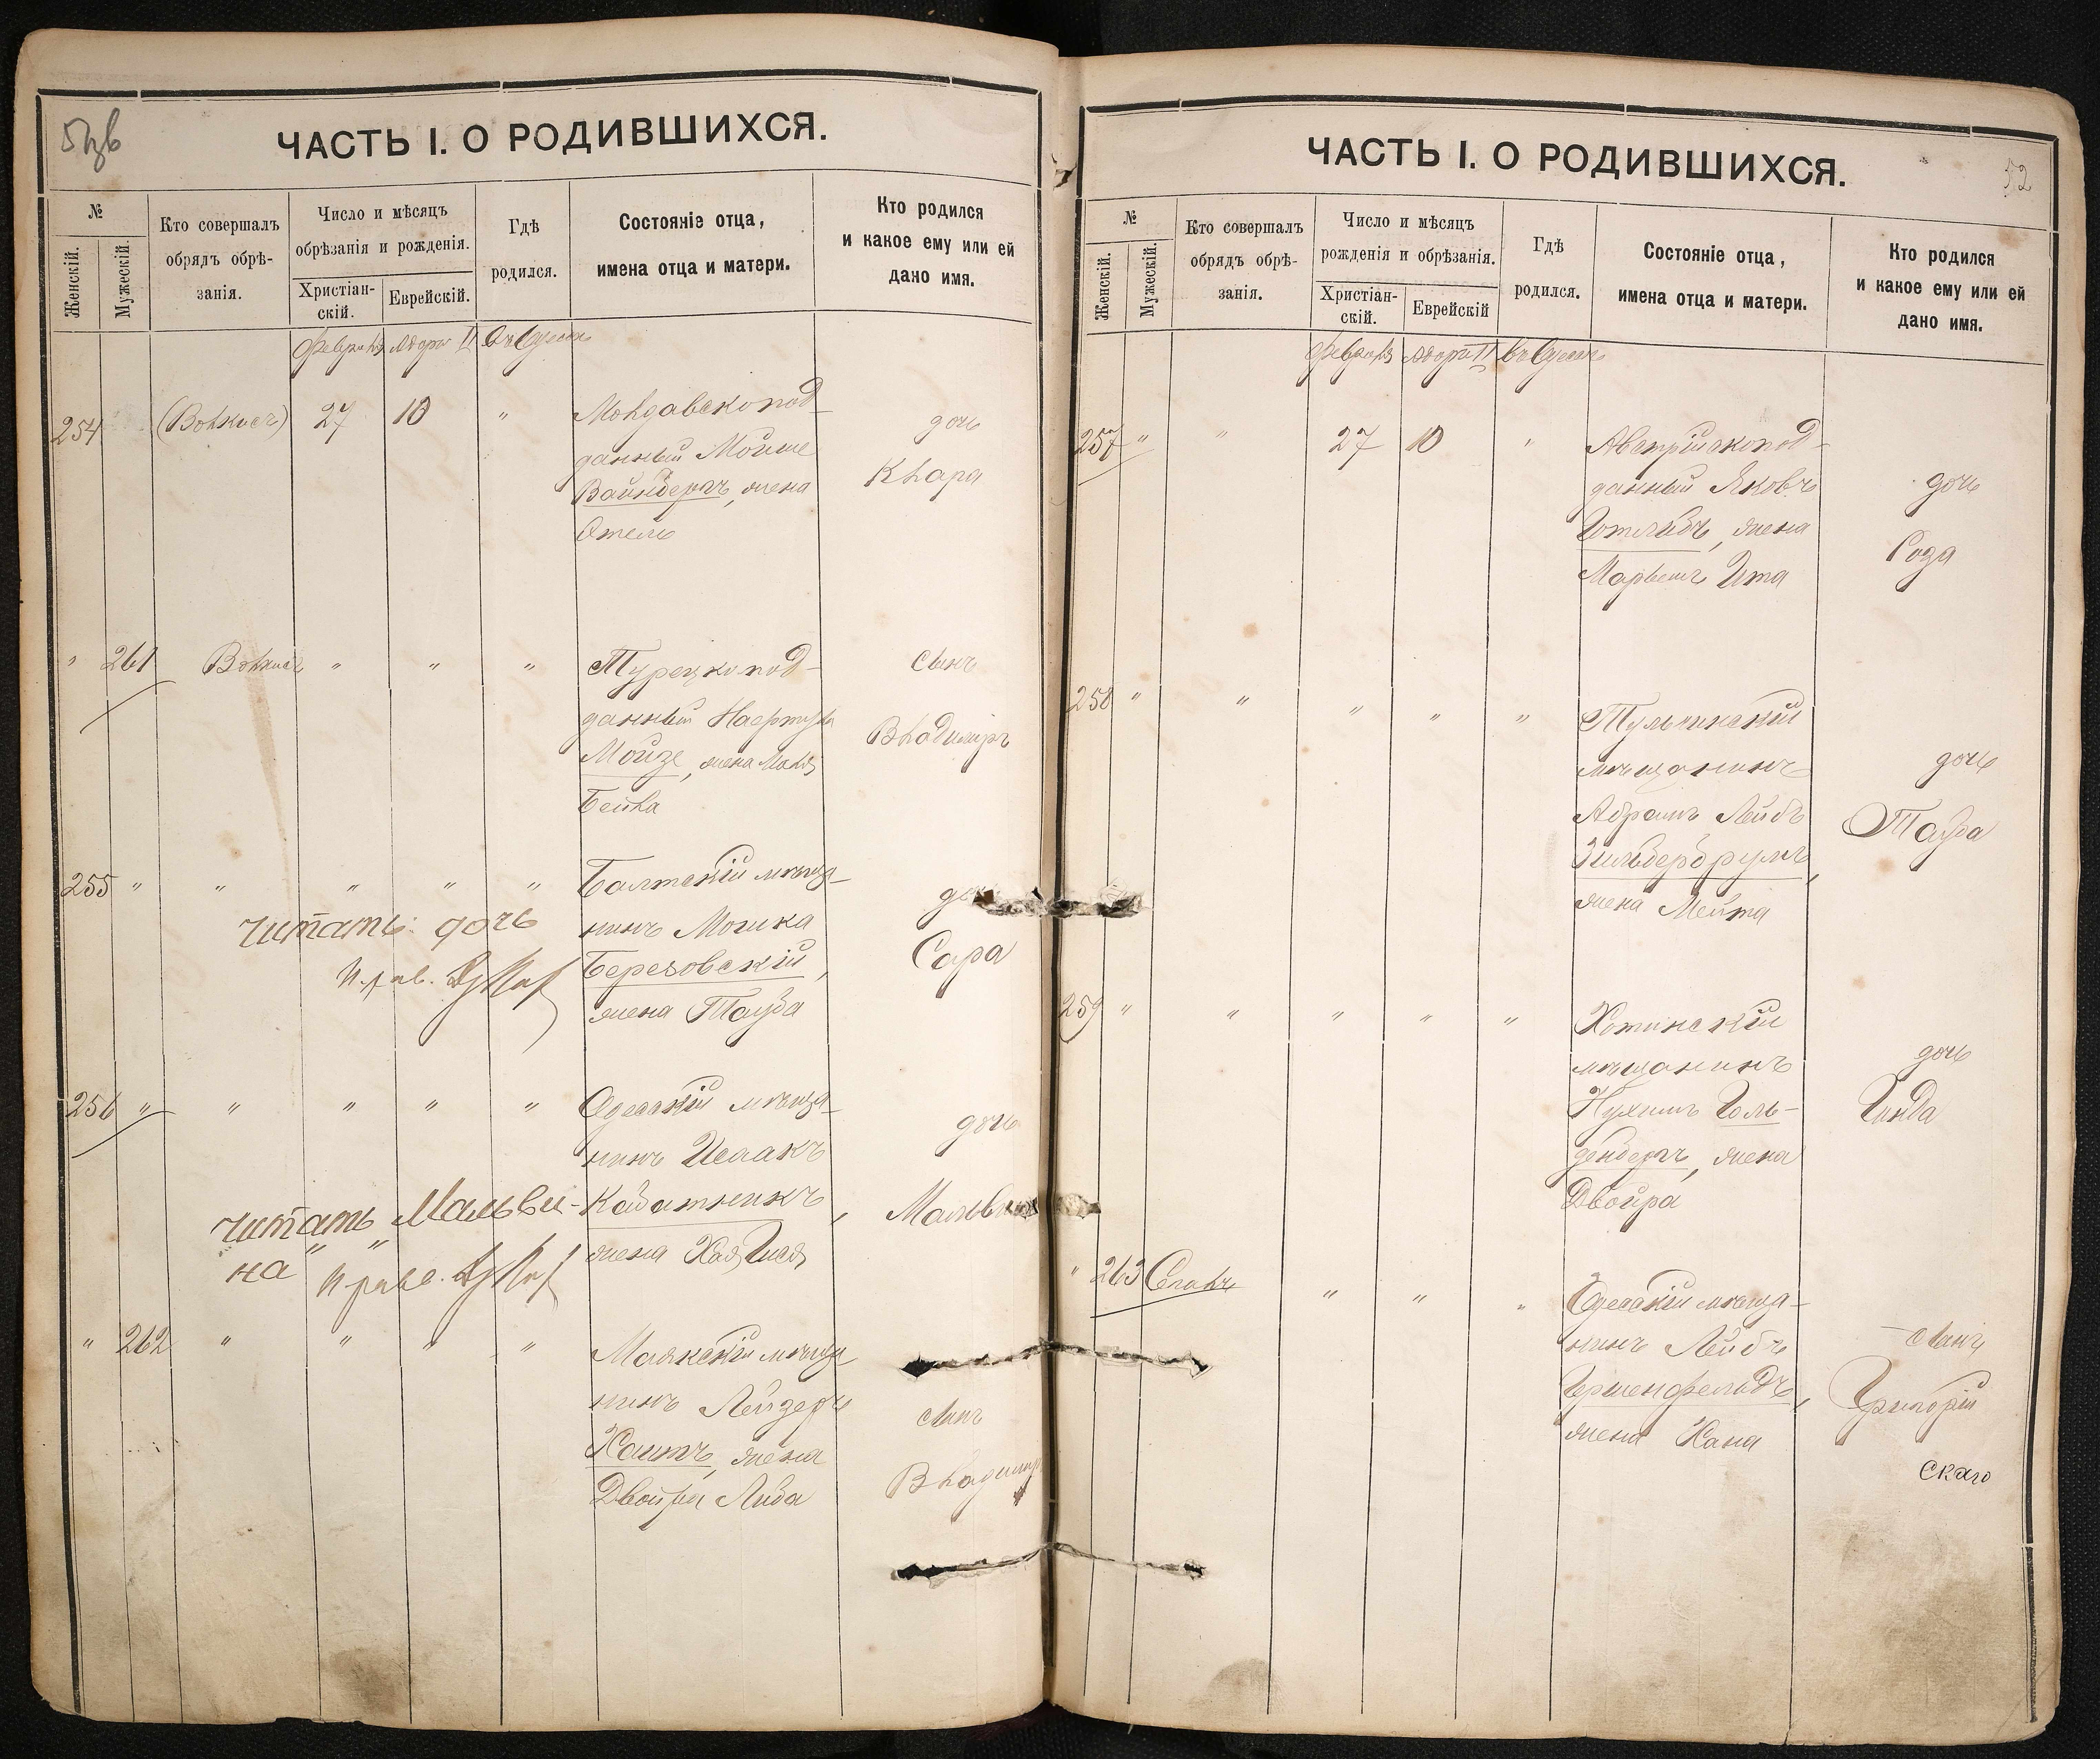 ЧАСТЬ I. О РОДИВШИХСЯ.
№
Женскій.
Мужескій.
Кто совершалъ
обрядъ обрѣ-
занія.
Число и мѣсяцъ
обрѣзанія и рожденія.
Христіан-
скій.
Еврейскій.
Гдѣ
родился.
Состояніе отца,
имена отца и матери.
Кто родился
и какое ему или ей
дано имя.
Февраля Адоръ II Въ Одессѣ
254 27 10 "
Молдавскопод-
данный Мойше
Вайнбергъ, жена
Этель
дочь
Клара
" 261 " " "
Турецкопод-
данный
Мойзе, жена
Бейла
сынъ
Владиміръ
255 " " " " "
Балтскій мѣща-
нинъ Мошка
Березовскій,
жена Тауба
Сара
читать: дочь
256 " " " " "
Одесскій мѣща-
нинъ Исаакъ
Кабатникъ,
жена Хая
дочь
читать „Мальви-
на“
" 262 " " " "
Маякскій мѣща-
нинъ Лейзеръ
Хаитъ, жена
Двойра Либа
сынъ
Владиміръ
ЧАСТЬ I. О РОДИВШИХСЯ.
52
№
Женскій.
Мужескій.
Кто совершалъ
обрядъ обрѣ-
занія.
Число и мѣсяцъ
рожденія и обрѣзанія.
Христіан-
скій.
Еврейскій
Гдѣ
родился.
Состояніе отца,
имена отца и матери.
Кто родился
и какое ему или ей
дано имя.
Февраля Адоръ II Въ Одессѣ
257 " " 27 10 "
Австрійскопод-
данный Яковъ
Готлибъ, жена
Ита
дочь
Роза
258 " " " " "
Тульчинскій
мѣщанинъ
Абрамъ Лейбъ
жена Мейта
дочь
Тауба
259 " " " " "
Хотинскій
мѣщанинъ
Нухимъ Голь-
денбергъ, жена
Двойра
дочь
Гинда
" 263 " " "
Одесскій мѣща-
нинъ Лейбъ
Гершенфельдъ,
жена Хана
сынъ
Григорій
скаго